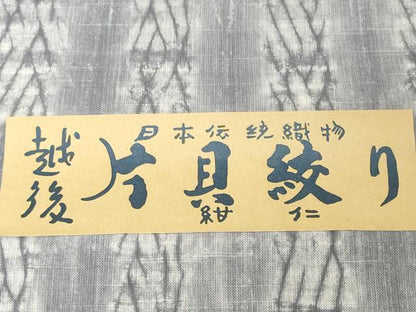 日本伝統織物
越後
片貝絞り
紺仁